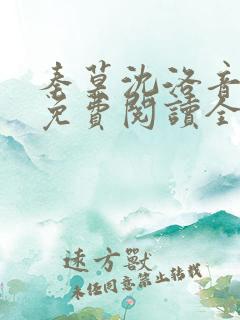 秦墓沈洛音
免費閱讀全
遠方獸
未經同意禁止轉載